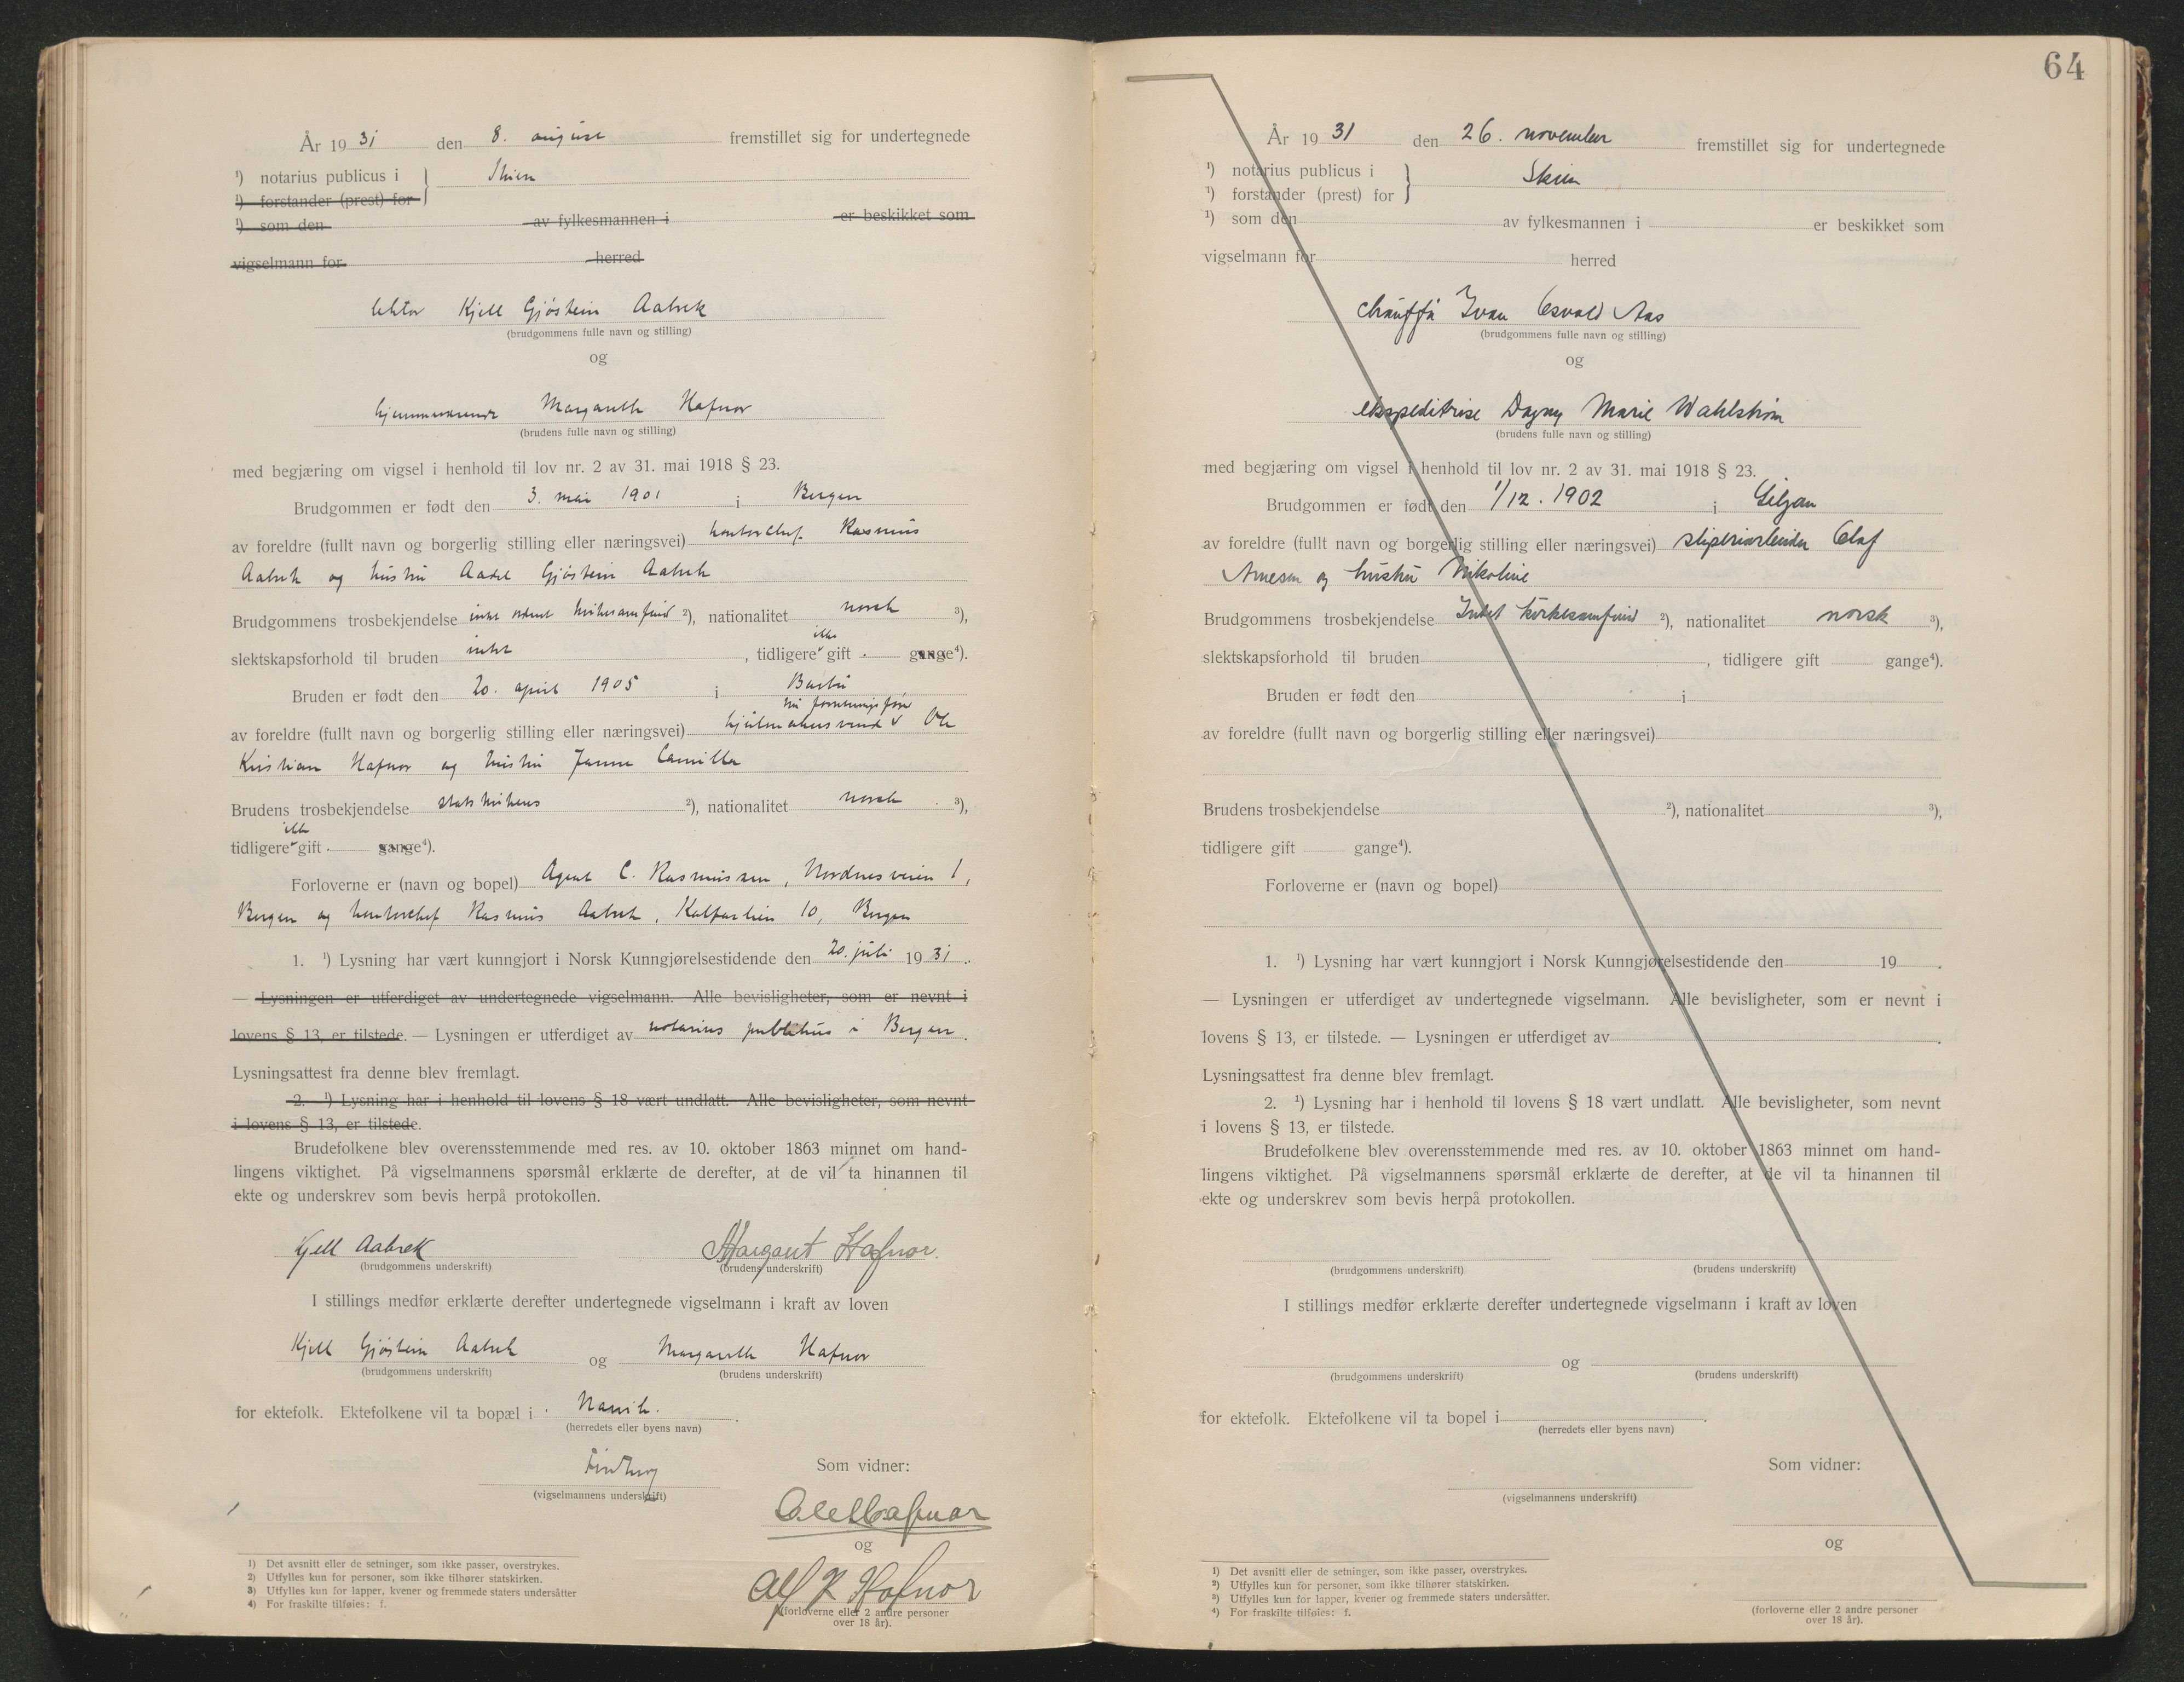 År 19 31 den 8. august fremstillet sig for undertegnede
¹) notarius publicus i } Skien
¹) forstander (prest) for
¹) som den av fylkesmannen i er beskikket som
vigselmann for herred
lektor Kjell Gjøstein Aabrek
(brudgommens fulle navn og stilling)
og
hjemmeværende Margareth Hafnor
(brudens fulle navn og stilling)
med begjæring om vigsel i henhold til lov nr. 2 av 31. mai 1918 § 23.
Brudgommen er født den 3. mai 1901 i Bergen
av foreldre (fullt navn og borgerlig stilling eller næringsvei) kontorchef Rasmus
Aabrek og hustru Aadel Gjøstein Aabrek
Brudgommens trosbekjendelse intet ordnet kirkesamfund ²), nationalitet norsk ³),
slektskapsforhold til bruden intet , tidligere ikke gift gange⁴).
Bruden er født den 20. april 1905 i Barbu
nu forretningsfører
av foreldre (fullt navn og borgerlig stilling eller næringsvei) Ole
Kristian Hafnor og hustru Janna Camilla
Brudens trosbekjendelse statskirkens ²), nationalitet norsk ³),
tidligere ikke gift gange⁴).
Forloverne er (navn og bopel) Agent C. Rasmussen, Nordnesveien 1,
Bergen og kontorchef Rasmus Aabrek, Kalfarlien 10, Bergen
1. ¹) Lysning har vært kunngjort i Norsk Kunngjørelsestidende den 20. juli 19 31.
— Lysningen er utferdiget av undertegnede vigselmann. Alle bevisligheter, som er nevnt i
lovens § 13, er tilstede. — Lysningen er utferdiget av notarius publikus i Bergen.
Lysningsattest fra denne blev fremlagt.
2. ¹) Lysning har i henhold til lovens § 18 vært undlatt. Alle bevisligheter, som nevnt
i lovens § 13, er tilstede.
Brudefolkene blev overensstemmende med res. av 10. oktober 1863 minnet om hand-
lingens viktighet. På vigselmannens spørsmål erklærte de derefter, at de vil ta hinannen til
ekte og underskrev som bevis herpå protokollen.
Kjell Aabrek Margaret Hafnor.
(brudgommens underskrift) (brudens underskrift)
I stillings medfør erklærte derefter undertegnede vigselmann i kraft av loven
Kjell Gjøstein Aabrek og Margareth Hafnor
(brudgommens underskrift) (brudens underskrift)
for ektefolk. Ektefolkene vil ta bopæl i
(herredets eller byens navn)
Som vidner:
(vigselmannens underskrift)
Ole Hafnor
og
Alf K Hafnor
(forloverne eller 2 andre personer
over 18 år).
1) Det avsnitt eller de setninger, som ikke passer, overstrykes.
2) Utfylles kun for personer, som ikke tilhører statskirken.
3) Utfylles kun for lapper, kvener og fremmede staters undersåtter
4) For fraskilte tilføies: f.
64
År 19 31 den 26. november fremstillet sig for undertegnede
¹) notarius publicus i } Skien
¹) forstander (prest) for
¹) som den av fylkesmannen i er beskikket som
vigselmann for herred
chauffør Ivan Osvald Aas
(brudgommens fulle navn og stilling)
og
ekspeditrise Dagny Marie Wahlstrøm
(brudens fulle navn og stilling)
med begjæring om vigsel i henhold til lov nr. 2 av 31. mai 1918 § 23.
Brudgommen er født den 1/12. 1902 i Siljan
av foreldre (fullt navn og borgerlig stilling eller næringsvei) sliperiarbeider Olaf
Arnesen og hustru Nikoline
Brudgommens trosbekjendelse Intet kirkesamfund ²), nationalitet norsk ³),
slektskapsforhold til bruden , tidligere gift gange⁴).
Bruden er født den i
av foreldre (fullt navn og borgerlig stilling eller næringsvei)
Brudens trosbekjendelse ²), nationalitet ³),
tidligere gift gange⁴).
Forloverne er (navn og bopel)
1. ¹) Lysning har vært kunngjort i Norsk Kunngjørelsestidende den 19 .
— Lysningen er utferdiget av undertegnede vigselmann. Alle bevisligheter, som er nevnt i
lovens § 13, er tilstede. — Lysningen er utferdiget av .
Lysningsattest fra denne blev fremlagt.
2. ¹) Lysning har i henhold til lovens § 18 vært undlatt. Alle bevisligheter, som nevnt
i lovens § 13, er tilstede.
Brudefolkene blev overensstemmende med res. av 10. oktober 1863 minnet om hand-
lingens viktighet. På vigselmannens spørsmål erklærte de derefter, at de vil ta hinannen til
ekte og underskrev som bevis herpå protokollen.
(brudgommens underskrift) (brudens underskrift)
I stillings medfør erklærte derefter undertegnede vigselmann i kraft av loven
og
(brudgommens underskrift) (brudens underskrift)
for ektefolk. Ektefolkene vil ta bopel i .
(herredets eller byens navn)
Som vidner:
(vigselmannens underskrift)
og
(forloverne eller 2 andre personer
over 18 år).
1) Det avsnitt eller de setninger, som ikke passer, overstrykes.
2) Utfylles kun for personer, som ikke tilhører statskirken.
3) Utfylles kun for lapper, kvener og fremmede staters undersåtter.
4) For fraskilte tilføies: f.